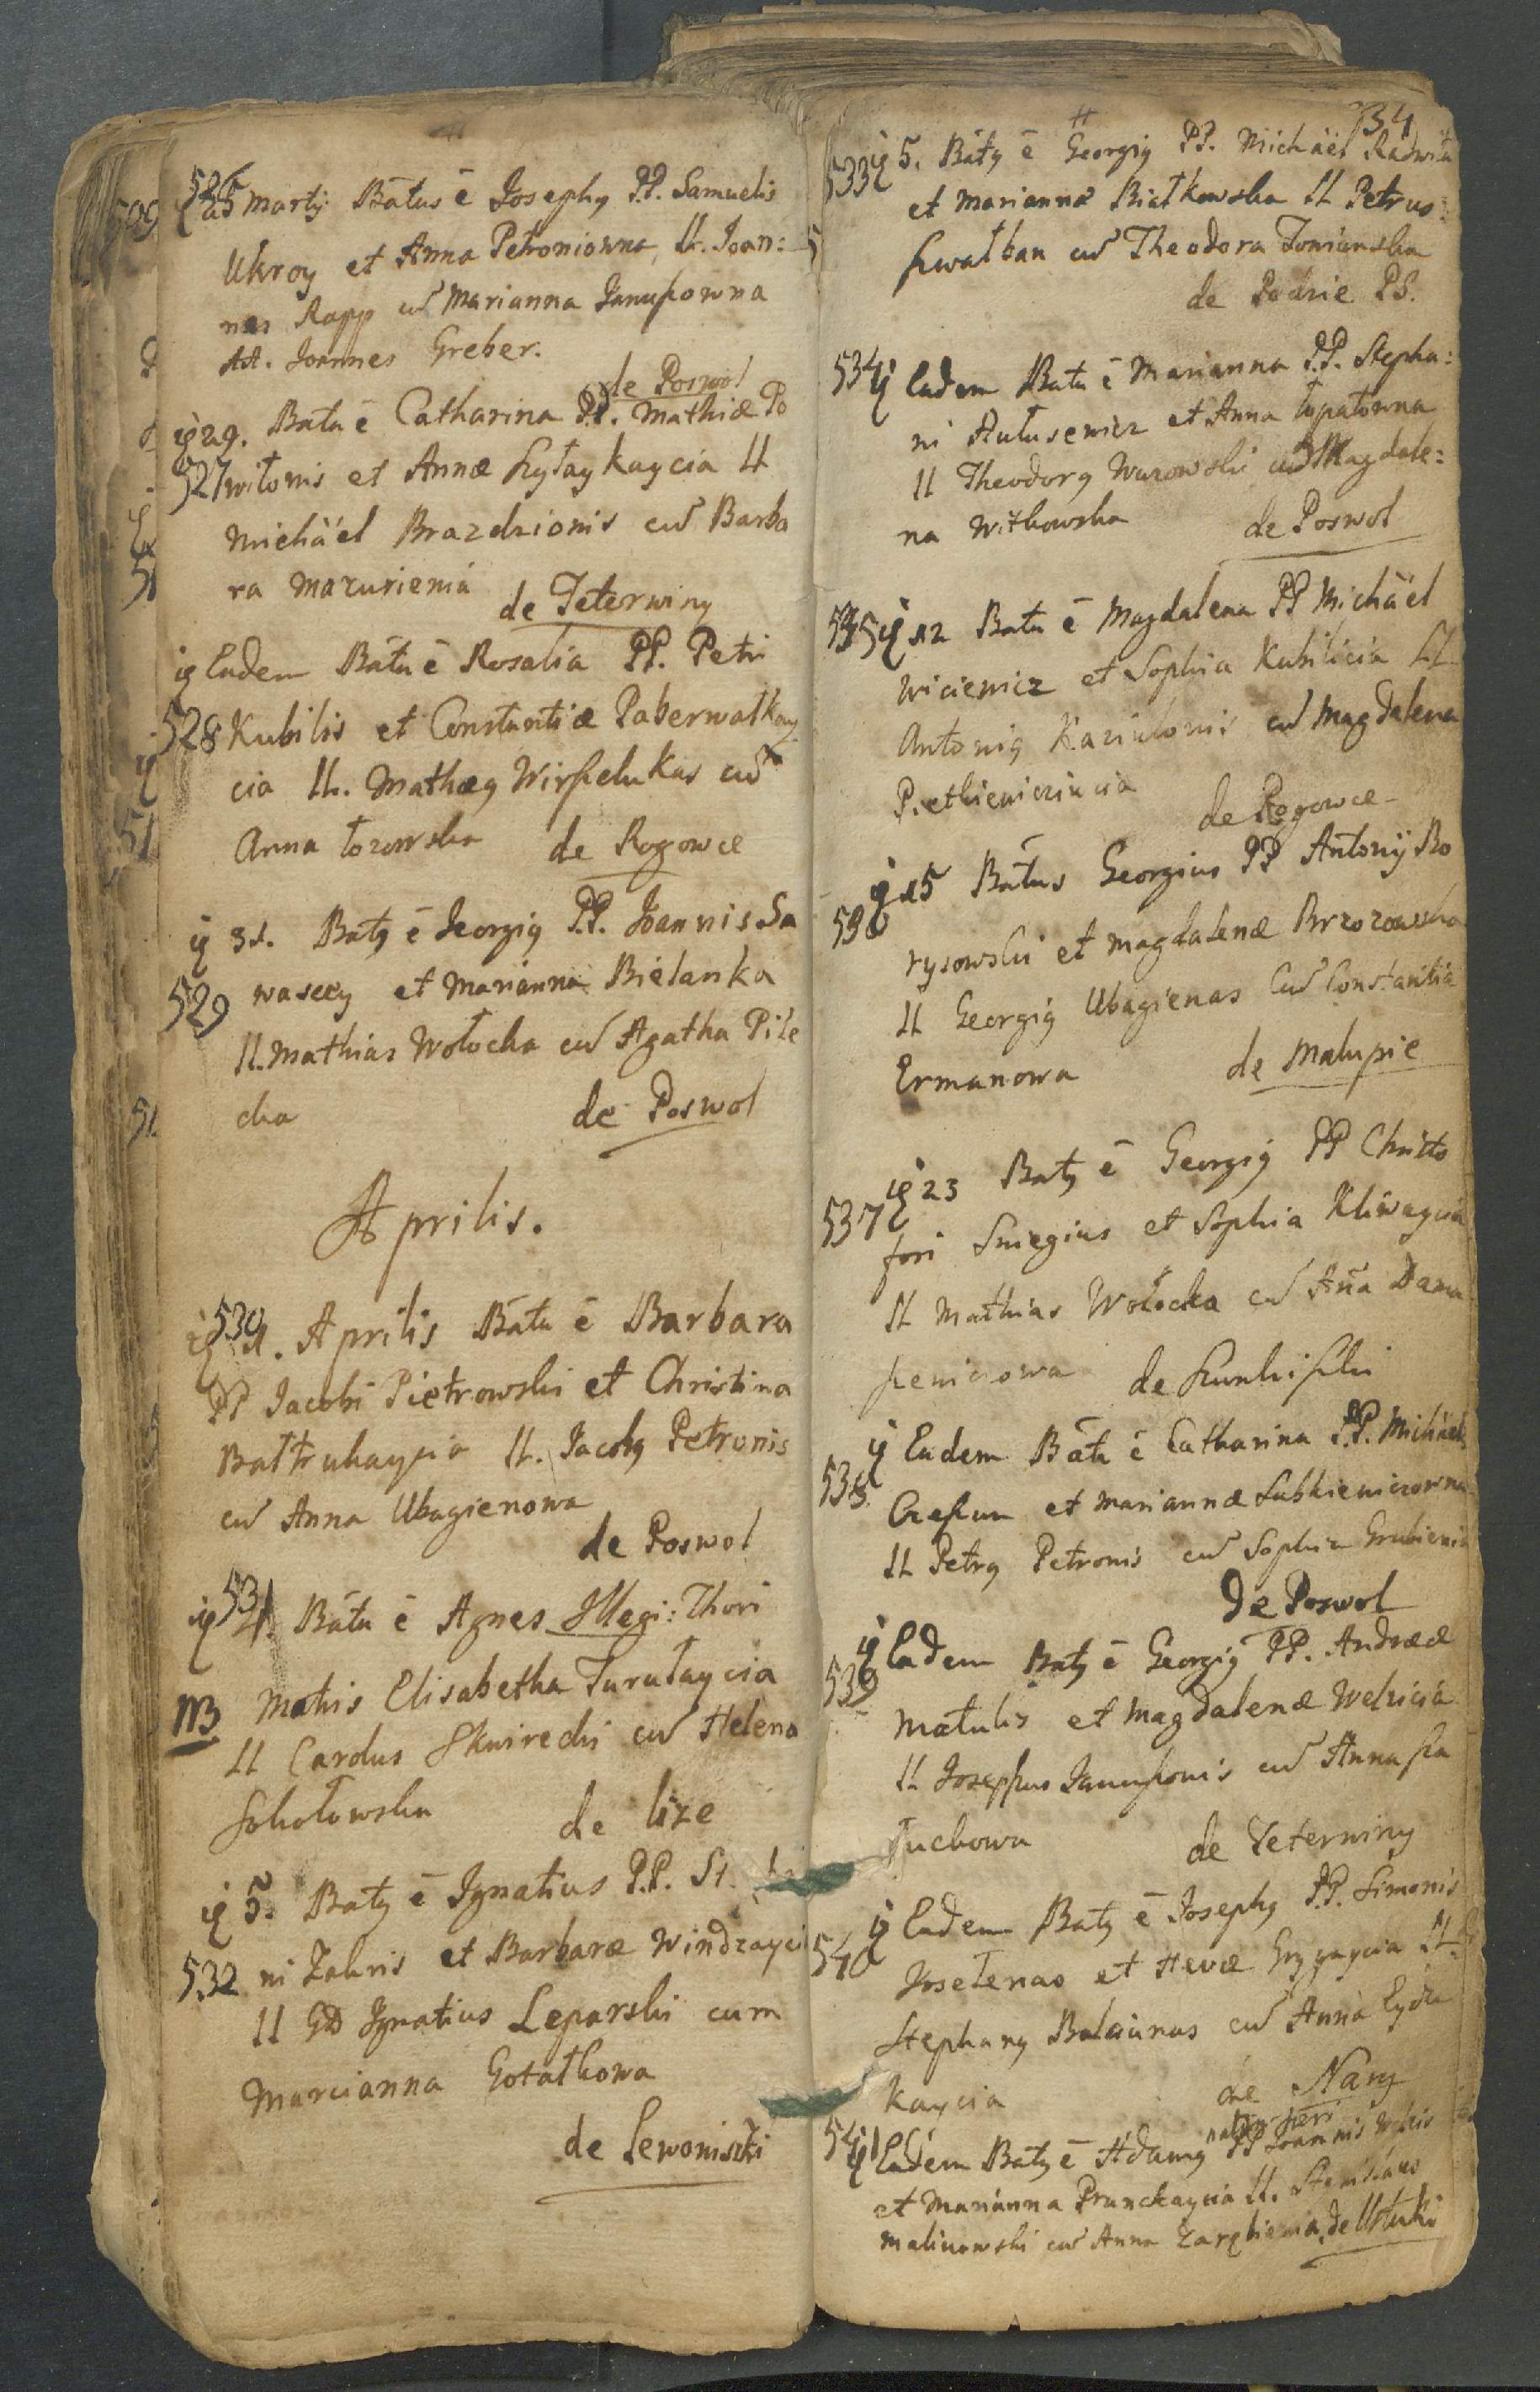 526
25 Martij Batus ē Josephq PP. Samuelis
Ukroy et Anna Petroniowna, LL. Joan:
nes Rapp cu Marianna Januszowna
AA. Joannes Greber.
de Poswol
29. Bata ē Catharina PP. Mathiæ Po
527 wiłonis et Annæ Szyłaykaycia LL
Michäel Brazdzionis cu Barba
ra Mazurienia
de Teterwiny
Eadem Bata ē Rosalia PP. Petri
528 Kubilis et Constantiæ Paberwalkay
cia LL. Mathæq Wirszelukas cu
Anna Łozowska de Rogowce
31. Batq ē Georgiq PP. Joannis Sa
529 wascey et Marianna Bielanka
LL. Mathias Wołocka cu Agatha Pile
cka de Poswol
Aprilis.
530
1. Aprilis Bata ē Barbara
PP Jacobi Pietrowski et Christina
Baltrukaycia LL. Jacobq Petronis
cu Anna Ubagienowa
de Poswol
531
4. Bata ē Agnes Illegi: Thori
NB Matris Elisabetha Turułaycia
LL Carolus Skwirecki cu Helena
Sokołowska de Lize
5. Batq ē Ignatius PP. St
532 ni Zakris et Barbaræ Windzayci
LL GD Ignatius Leparski cum
Marcianna Gotatkowa
de Lewoniszki
34
533 5. Batq ē Georgiq PP. Michäel Radwiła
et Marianna Białkowska LL Petrus
Szwałban cu Theodora Tomianska
de Podzie PS.
534 Eadem Bata ē Marianna PP. Stepha:
ni Rutusewicz et Anna Łopatowna
LL Theodorq Wurowski cu Magdale:
na Witkowska de Poswol
535 12 Bata ē Magdalena PP Michäel
Wiciewicz et Sophia Kubilicia LL
Antoniq Kaziulonis cu Magdalena
Pietkiewiciucia
de Rogowce
15 Batus Georgius PP Antonij Bo
536 rysowski et Magdalenæ Brzozowska
LL Georgiq Ubagienas Cu Constantia
Ermanowa de Malupie
23 Batq ē Georgiq PP Christo
537 fori Sniegius et Sophia Kliwaycia
LL Mathias Wołocka cu Aña Dama
szewiczowa de Kunkiszki
Eadem Bata ē Catharina PP. Michäel
538 Czeszun et Mariannæ Lubkiewiczowna
LL Petrq Petronis cu Sophia Grubienia
De Poswol
Eadem Batq ē Georgiq PP. Andreæ
539
Matulis et Magdalenæ Welzicia
LL Josephus Januszonis cu Anna Sza
Tuchowa de Teterwiny
Eadem Batq ē Josephq PP. Simonis
540 Joselenas et Hevæ Gryzaycia LL
Stephanq Balciunas cu Anna Eydu
kaycia de Narq
541 Eadem Batq ē Adamq PP Joannis
et Marianna Pranckaycia LL. Stanislaus
Malinowski cu Anna Zarębienia, de Ustuki